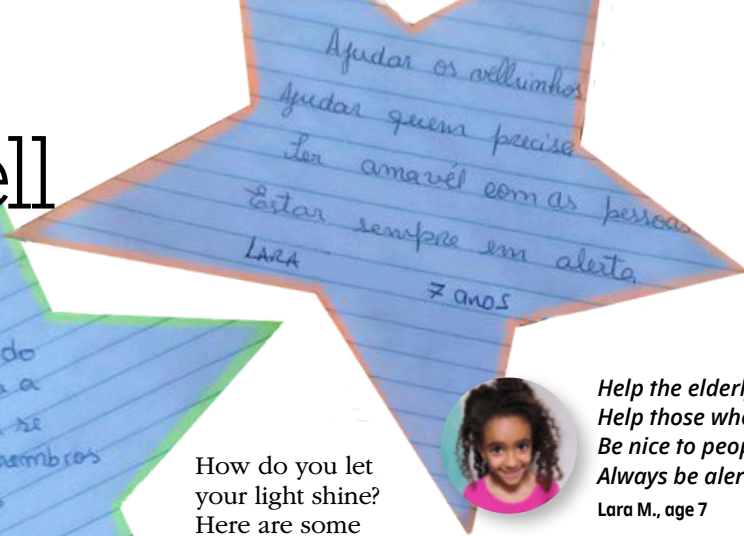 ell
Ajudar os velhinhos
Ajudar quem precisa
Ser amavél com as pessoas
Estar sempre em alerta
LARA
7 anos
do
a
re
membros
How do you let
your light shine?
Here are some
Help the elderly
Help those who
Be nice to peop
Always be aler
Lara M., age 7